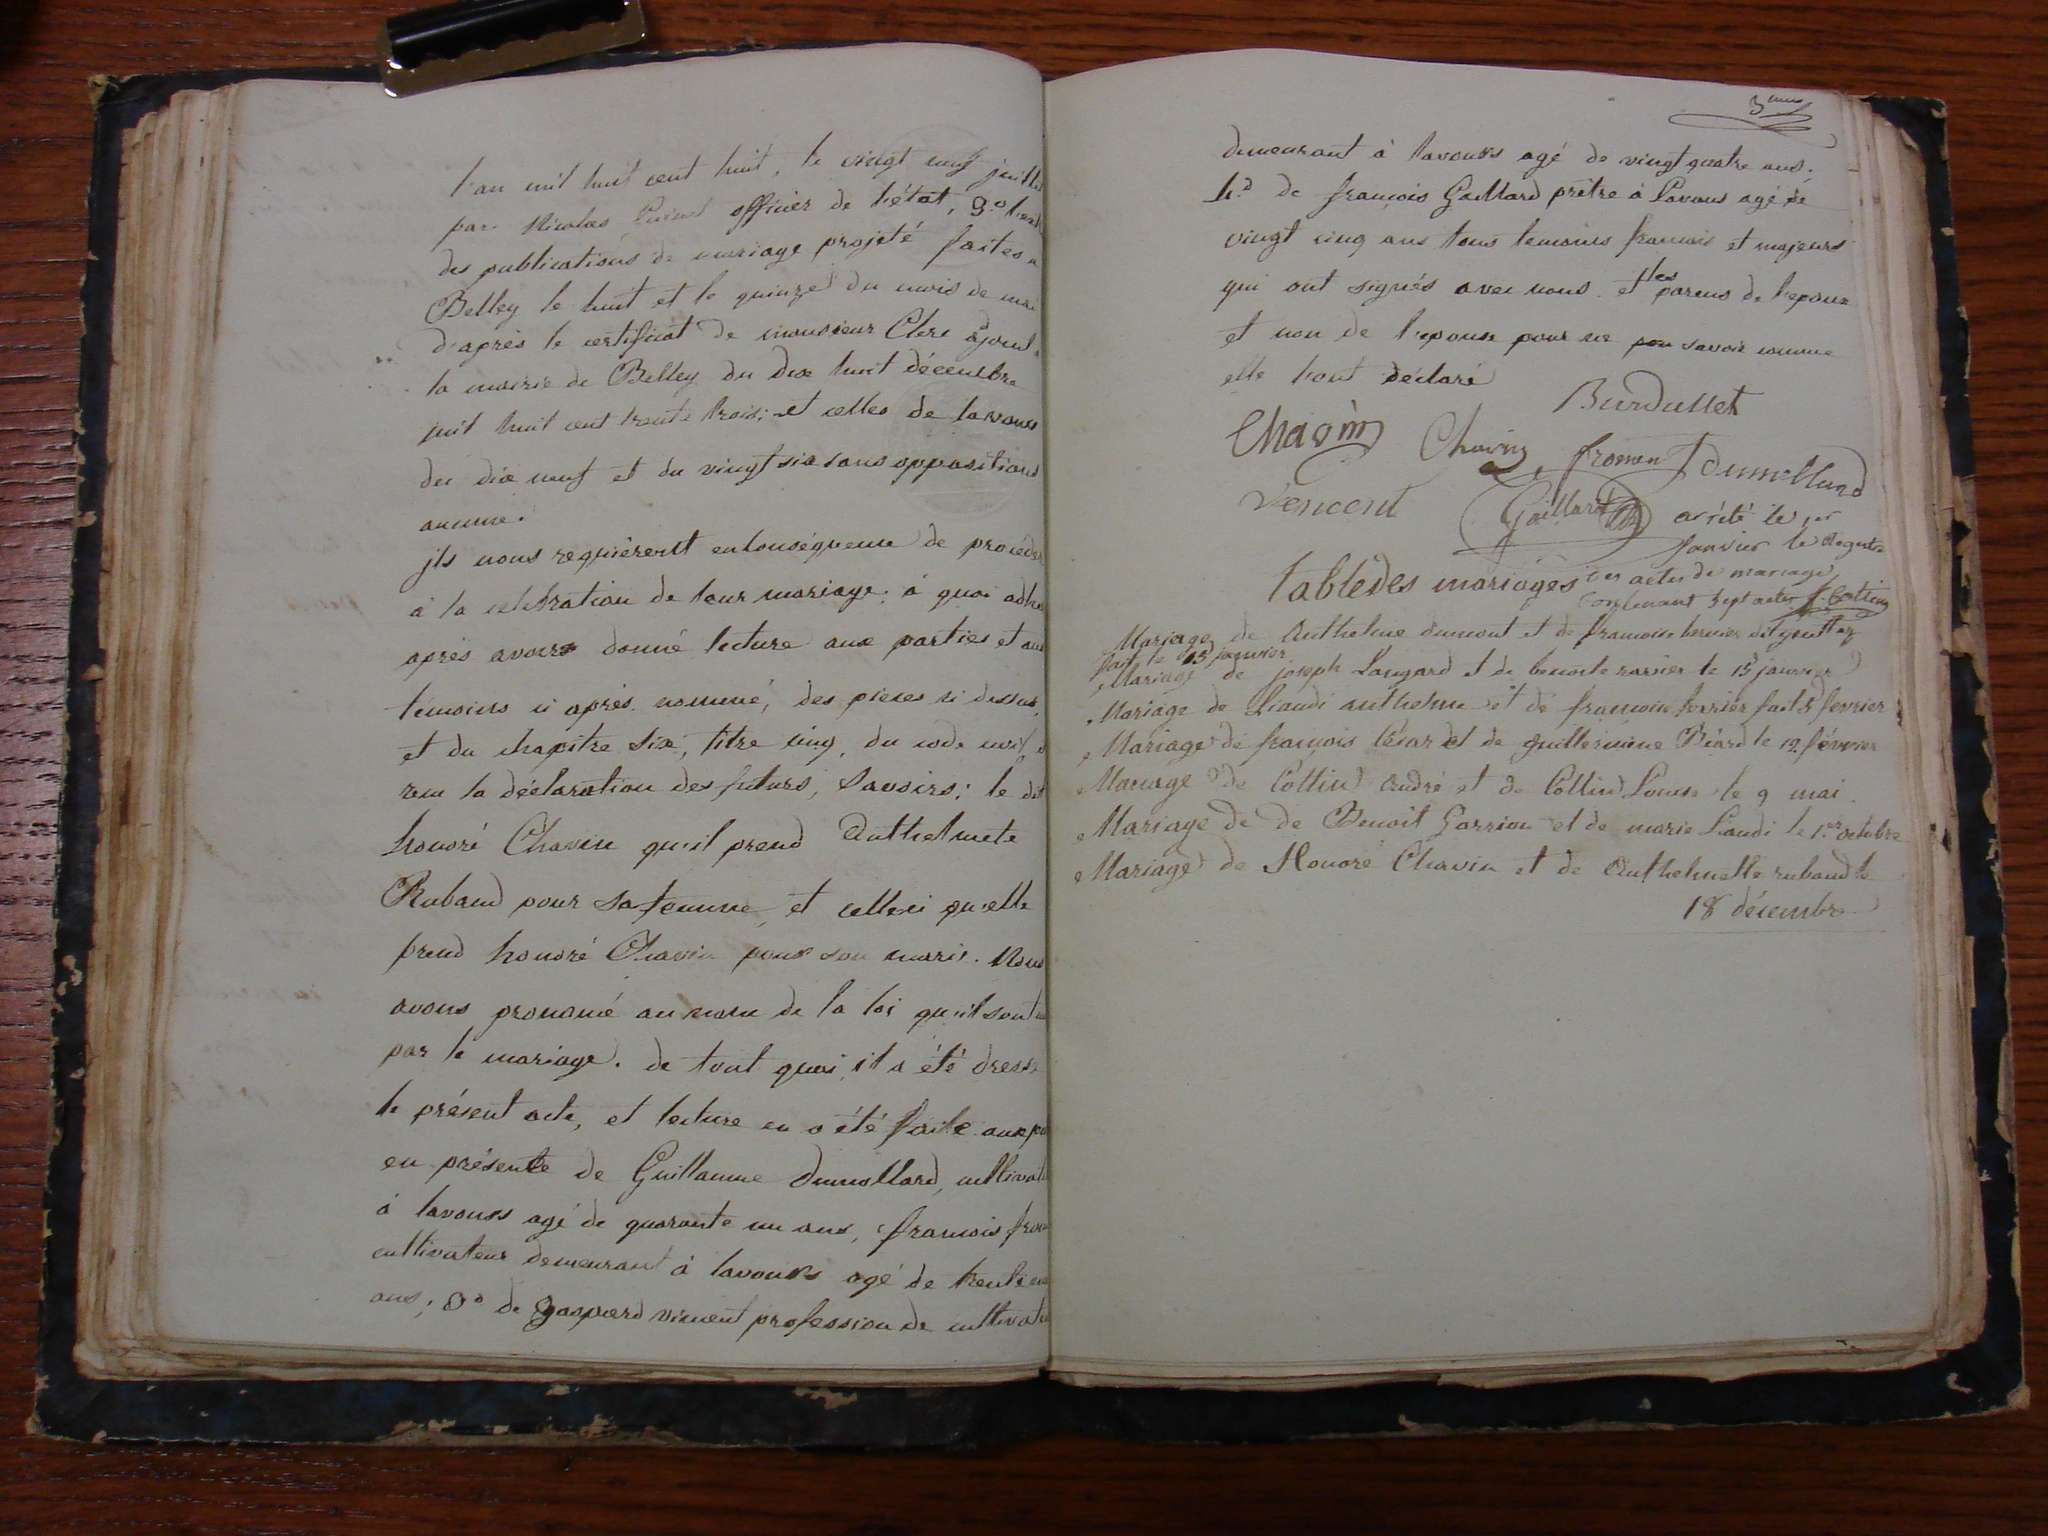 l'an mil huit cent huit, le vingt neuf juillet
par Nicolas officier de l'état, 3.o
des publications de mariage projeté faites a
Belley le huit et le quinze du mois de
d'après le certificat de monsieur Clerc adjoint
la mairie de Belley du dix huit décembre
mil huit cent trente trois; et celles de lavours
du dix neuf et du vingt six sans oppositions
aucune.
jls nous requièrent en conséquence de procéder
à la célébration de leur mariage; à quoi
après avoirs donné lecture aux parties et aux
temoins ci après nommé, des pièces ci dessus,
et du chapitre six, titre cinq, du code civil
reçu la déclaration des futurs, Savoirs; le dit
honoré Chavin qu'il prend Anthelmete
Rubaud pour sa femme, et celle ci qu'elle
prend honoré Chavin pour son maris. Nous
avons prononcé au nom de la loi qu'il sont
par le mariage. de tout quoi, il a été dressé
le présent acte, et lecture en a été faite aux
en présence de Guillaume dumollard, cultivate
à lavours agé de quarante un ans, francois
cultivateur demeurant à lavours agé de trente
ans; 3o de gaspard vincent profession de cultivate
3eme
demeurant à lavours agé de vingt quatre ans;
4.o de françois Gaillard prêtre à Lavours agé de
vingt cinq ans tous temoins francais et majeurs
qui ont signés avec nous et les parens de l'epoux
et non de l'epouse pour ne pas savoir comme
elle l'ont déclaré
Burdullet
Chavin Chavin fromen dumollard
Vencent Gaillard arrêté le 1er
Janvier le Registre
table des mariages des actes de mariage
Contenant Sept actes J. Cottin
Mariage de Anthelme dumont et de francoise dit
fait le 15 janvier
Mariage de joseph Longard et de benoite le 15 janvier
Mariage de Liaudi anthelme et de françoise ferrier fait 5 fevrier
Mariage de françois César et de guillermine Béard le 12 février
Mariage de Cottin André et de Collin Louise le 9 mai
Mariage de de Benoit Garrion et de marie Laudi le 1.er octobre
Mariage de Honoré Chavin et de Anthelmette rubaud le
18 décembre